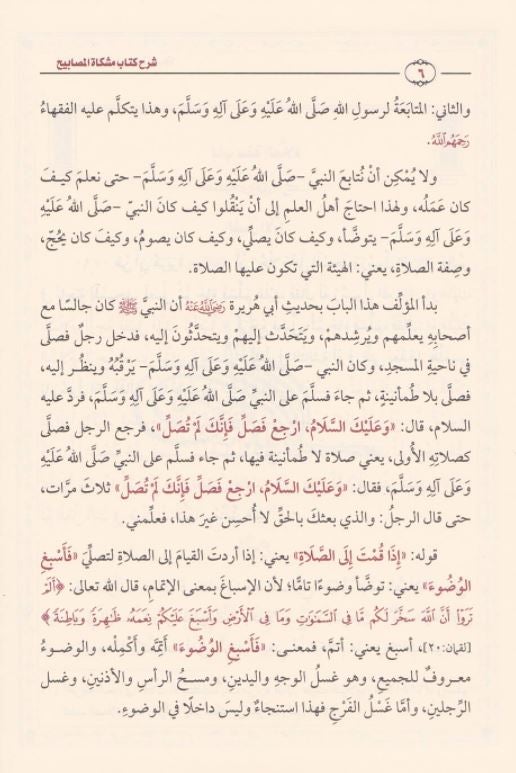 شرح كتاب مشكاة المصابيح
٦
والثاني: المتابَعَةُ لرسولِ اللهِ صَلَّى اللهُ عَلَيْهِ وَعَلَى آلِهِ وَسَلَّمَ، وهذا يتكلَّم عليه الفقهاءُ
رَحِمَهُمُ اللَّهُ.
ولا يُمْكِن أنْ نُتابعَ النبيَّ -صَلَّى اللهُ عَلَيْهِ وَعَلَى آلِهِ وَسَلَّمَ- حتى نعلمَ كيفَ
كان عَمَلُه، ولهذا احتاجَ أهلُ العلمِ إلى أنْ يَنْقُلوا كيف كانَ النبيّ -صَلَّى اللهُ عَلَيْهِ
وَعَلَى آلِهِ وَسَلَّمَ- يتوضَّأ، وكيف كانَ يصلِّي، وكيف كان يصومُ، وكيفَ كان يحُجّ،
وصِفة الصلاةِ، يعني: الهيئة التي تكون عليها الصلاة.
بدأ المؤلِّف هذا البابَ بحديثِ أبي هُريرة رَضِيَ اللَّهُ عَنْهُ أن النبيَّ ﷺ كان جالسًا مع
أصحابِهِ يعلِّمهم ويُرشِدهمْ، ويَتَحَدَّث إليهمْ ويتحدَّثُونَ إليه، فدخل رجلٌ فصلَّى
في ناحيةِ المسجدِ، وكان النبي -صَلَّى اللهُ عَلَيْهِ وَعَلَى آلِهِ وَسَلَّمَ- يَرْقُبُهُ وينظُر إليه،
فصلَّى بلا طُمأنينةٍ، ثم جاءَ فسلَّمَ على النبيِّ صَلَّى اللهُ عَلَيْهِ وَعَلَى آلِهِ وَسَلَّمَ، فردَّ عليه
السلام، قال: «وَعَلَيْكَ السَّلَامُ، ارْجِعْ فَصَلِّ فَإِنَّكَ لَمْ تُصَلِّ»، فرجع الرجل فصلَّى
كصلاتِهِ الأُولى، يعني صلاة لا طُمأنينة فيها، ثم جاء فسلَّم على النبيِّ صَلَّى اللهُ عَلَيْهِ
وَعَلَى آلِهِ وَسَلَّمَ، فقال: «وَعَلَيْكَ السَّلَامُ، ارْجِعْ فَصَلِّ فَإِنَّكَ لَمْ تُصَلِّ» ثلاثَ مرَّات،
حتى قال الرجلُ: والذي بعثكَ بالحَقِّ لا أُحسِن غيرَ هذا، فعلِّمني.
قوله: «إِذَا قُمْتَ إِلَى الصَّلَاةِ» يعني: إذا أردتَ القيامَ إلى الصلاةِ لتصلِّيَ «فَأَسْبِغِ
الوُضُوءَ» يعني: توضَّأ وضوءًا تامًّا؛ لأن الإسباغَ بمعنى الإتمامِ، قال الله تعالى: ﴿أَلَمْ
تَرَوْا أَنَّ اللَّهَ سَخَّرَ لَكُم مَّا فِي السَّمَاوَاتِ وَمَا فِي الْأَرْضِ وَأَسْبَغَ عَلَيْكُمْ نِعَمَهُ ظَاهِرَةً وَبَاطِنَةً﴾
[لقمان:٢٠]، أسبغ يعني: أتمَّ، فمعنى: «فَأَسْبِغِ الوُضُوءَ» أتمَّه وأَكْمِلْه، والوضوءُ
معروفٌ للجميعِ، وهو غسلُ الوجهِ واليدينِ، ومسحُ الرأسِ والأذنينِ، وغسل
الرِّجلين، وأمَّا غَسْلُ الفَرْجِ فهذا استنجاءٌ وليسَ داخلًا في الوضوءِ.